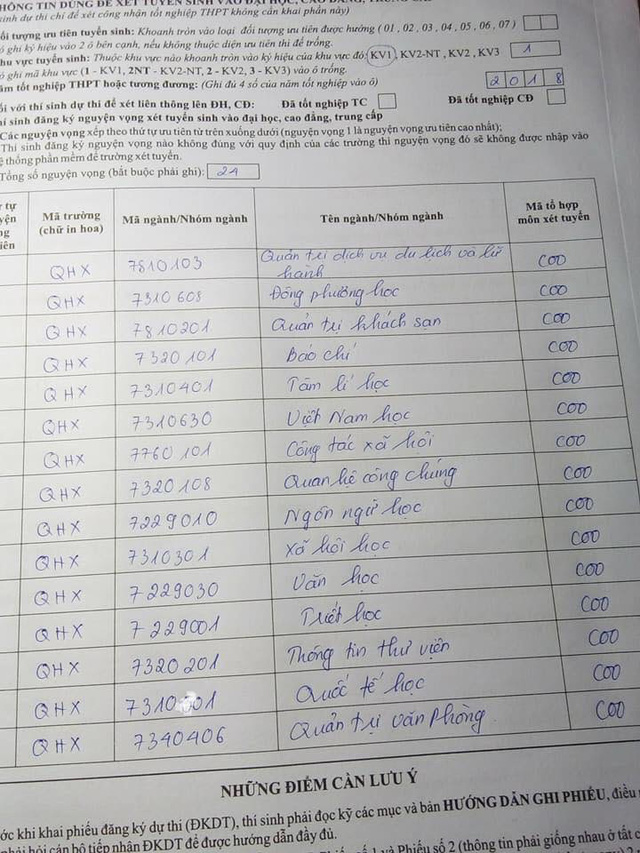 HÔNG TIN DÙNG ĐỂ XÉT TUYỂN SINH VÀO ĐẠI HỌC, CAO ĐẲNG, TRUNG
sinh dự thi chỉ để xét công nhận tốt nghiệp THPT không cần khai phần này)
ối tượng ưu tiên tuyển sinh: Khoanh tròn vào loại đối tượng ưu tiên được hưởng ( 01 , 02 , 03 , 04 , 05 , 06 , 07 )
ó ghi ký hiệu vào 2 ô bên cạnh, nếu không thuộc diện ưu tiên thì để trống.
hu vực tuyển sinh: Thuộc khu vực nào khoanh tròn vào ký hiệu của khu vực đó: KV1, KV2-NT , KV2 , KV3 1
ó ghi mã khu vực (1 - KV1, 2NT - KV2-NT, 2 - KV2, 3 - KV3) vào ô trống.
ăm tốt nghiệp THPT hoặc tương đương: (Ghi đủ 4 số của năm tốt nghiệp vào ô) 2 0 1 8
ối với thí sinh dự thi để xét liên thông lên ĐH, CĐ: Đã tốt nghiệp TC Đã tốt nghiệp CĐ
hí sinh đăng ký nguyện vọng xét tuyển sinh vào đại học, cao đẳng, trung cấp
Các nguyện vọng xếp theo thứ tự ưu tiên từ trên xuống dưới (nguyện vọng 1 là nguyện vọng ưu tiên cao nhất);
Thí sinh đăng ký nguyện vọng nào không đúng với quy định của các trường thì nguyện vọng đó sẽ không được nhập vào
ệ thống phần mềm để trường xét tuyển.
Tổng số nguyện vọng (bắt buộc phải ghi): 21
Mã trường (chữ in hoa) Mã ngành/Nhóm ngành Tên ngành/Nhóm ngành Mã tổ hợp môn xét tuyển
QHX 7810103 Quản trị dịch vụ du lịch và lữ hành C00
QHX 7310608 Đông phương học C00
QHX 7810201 Quản trị khách sạn C00
QHX 7320101 Báo chí C00
QHX 7310401 Tâm lí học C00
QHX 7310630 Việt Nam học C00
QHX 7760101 Công tác xã hội C00
QHX 7320108 Quan hệ công chúng C00
QHX 7229010 Ngôn ngữ học C00
QHX 7310301 Xã hội học C00
QHX 7229030 Văn học C00
QHX 7229001 Triết học C00
QHX 7320201 Thông tin thư viện C00
QHX Quốc tế học C00
QHX 7340406 Quản trị văn phòng C00
NHỮNG ĐIỂM CẦN LƯU Ý
ớc khi khai phiếu đăng ký dự thi (ĐKDT), thí sinh phải đọc kỹ các mục và bản HƯỚNG DẪN GHI PHIẾU, điều
phải hỏi cán bộ tiếp nhận ĐKDT để được hướng dẫn đầy đủ.
và Phiếu số 2 (thông tin phải giống nhau ở tất